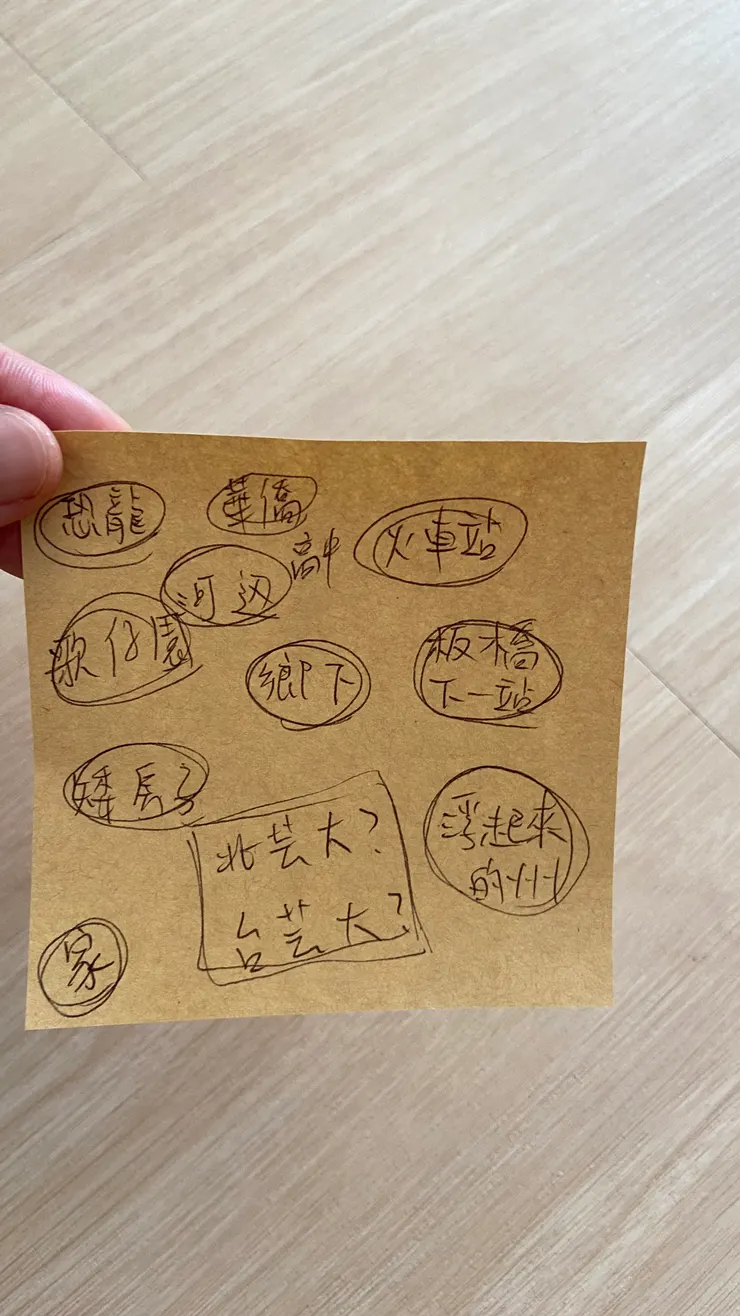 恐龍
華僑
高中
火車站
河辺
歌仔園
鄉下
板橋
下一站
矮房子
北芸大?
台芸大?
浮起來
的州
家